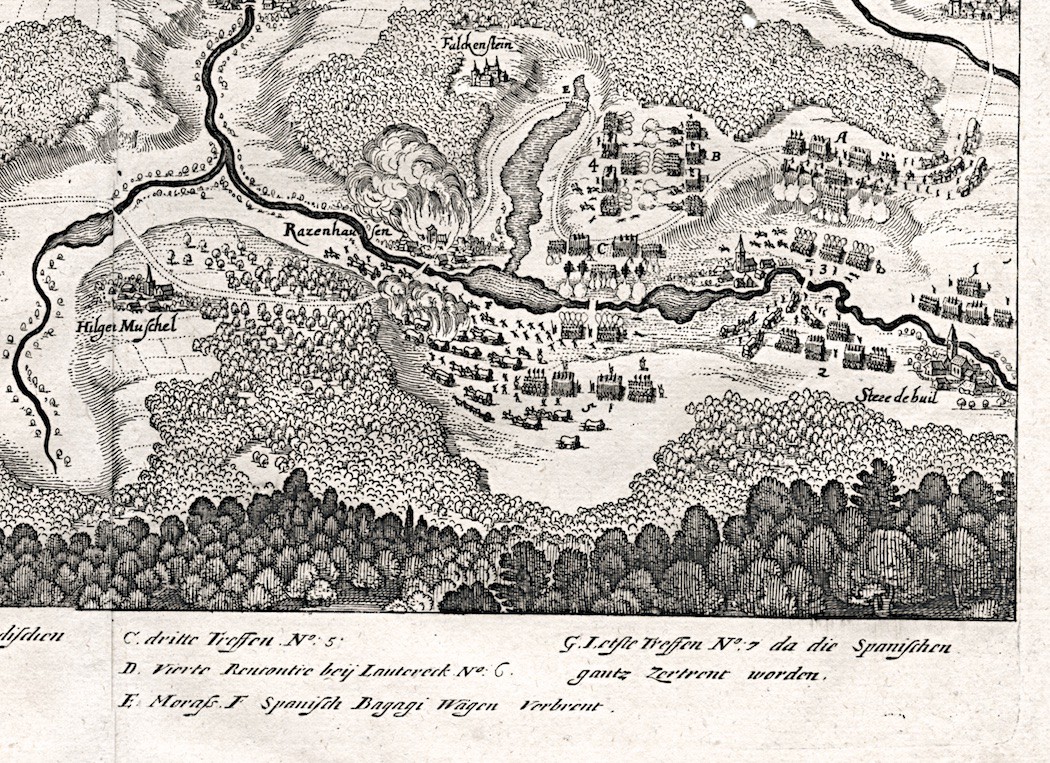 Falckenstein
E
A
B
4
Razenhaussen
C
3
b
1
Hilgei Muschel
2
Steeedebuil
5
dischen
C. dritte Treffen. No: 5.
D. Vierte Rencontre beÿ Lautereck No: 6.
E. Morass. F Spanisch Bagagi Wägen Verbrent.
G. Letste Treffen No. 7 da die Spanischen
gantz Zertrent worden.